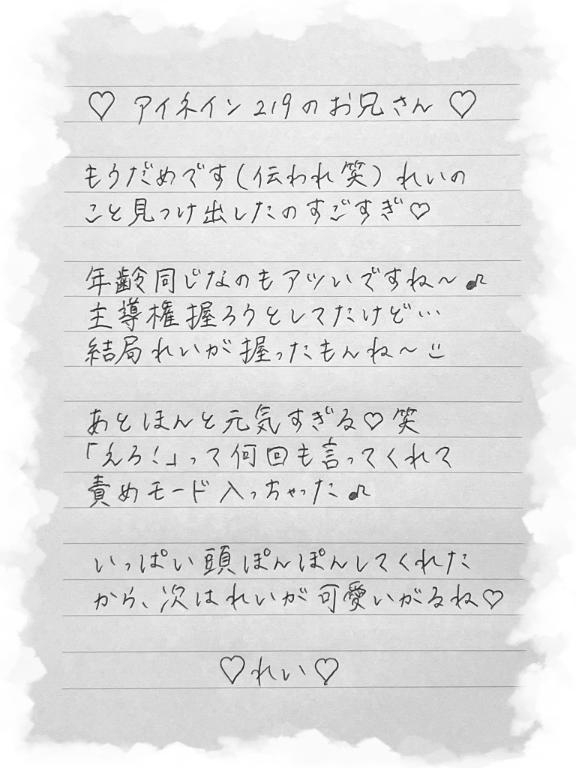 ♡ アイネイン219のお兄さん ♡
もうだめです(伝われ笑) れいの
こと見つけ出したのすごすぎ♡
年齢同じなのもアツいですね〜♪
主導権握ろうとしてたけど…
結局れいが握ったもんね〜
あとほんと元気すぎる♡笑
「えろ!」って何回も言ってくれて
責めモード入っちゃった♪
いっぱい頭ぽんぽんしてくれた
から、次はれいが可愛いがるね♡
♡れい♡